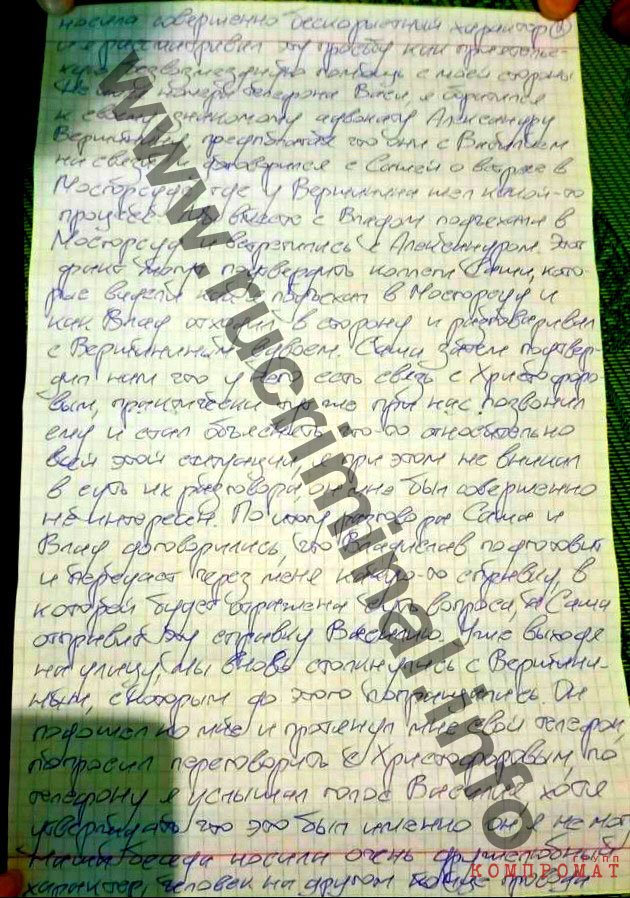 носила совершенно бескорыстный характер
и я рассматривал эту просьбу как приятельс-
кую безвозмездную помощь с моей стороны
номера телефона Васи, я обратился
к своему знакомому адвокату Александру
Вершинину предполагая что они с
на связи и договорился с Сашей о встрече в
Мосгорсуде, где у Вершинина шел какой-то
процесс. Мы вместе с Владом подъехали в
Мосгорсуд и встретились с Александром. Этот
факт могут подтвердить коллеги Саши, кото-
рые видели как я подъехал в Мосгорсуд и
как Влад отходил в сторону и разговаривал
с Вершининым вдвоем. Саша затем подтвер-
дил нам что у него есть связь с Христофоро-
вым, практически тут же при нас позвонил
ему и стал объяснять что-то относительно
всей этой ситуации, я при этом не вникал
в суть их разговора он мне был совершенно
не интересен. По итогу разговора Саша и
Влад договорились, что Владислав подготовит
и передаст через меня какую-то справку, в
которой будет отражена суть вопроса, а Саша
отправит эту справку Василию. Уже выходя
на улицу, мы вновь столкнулись с Вершини-
ным, с которым до этого попрощались. Он
подошел ко мне и протянул мне свой телефон,
попросил переговорить с Христофоровым, по
телефону я услышал голос Василия хотя
утверждать что это был именно он я не мог
Наша беседа носила очень дружелюбный
характер, человек на другом конце провода
www.rucriminal.info
групп
КОМПРОМАТ